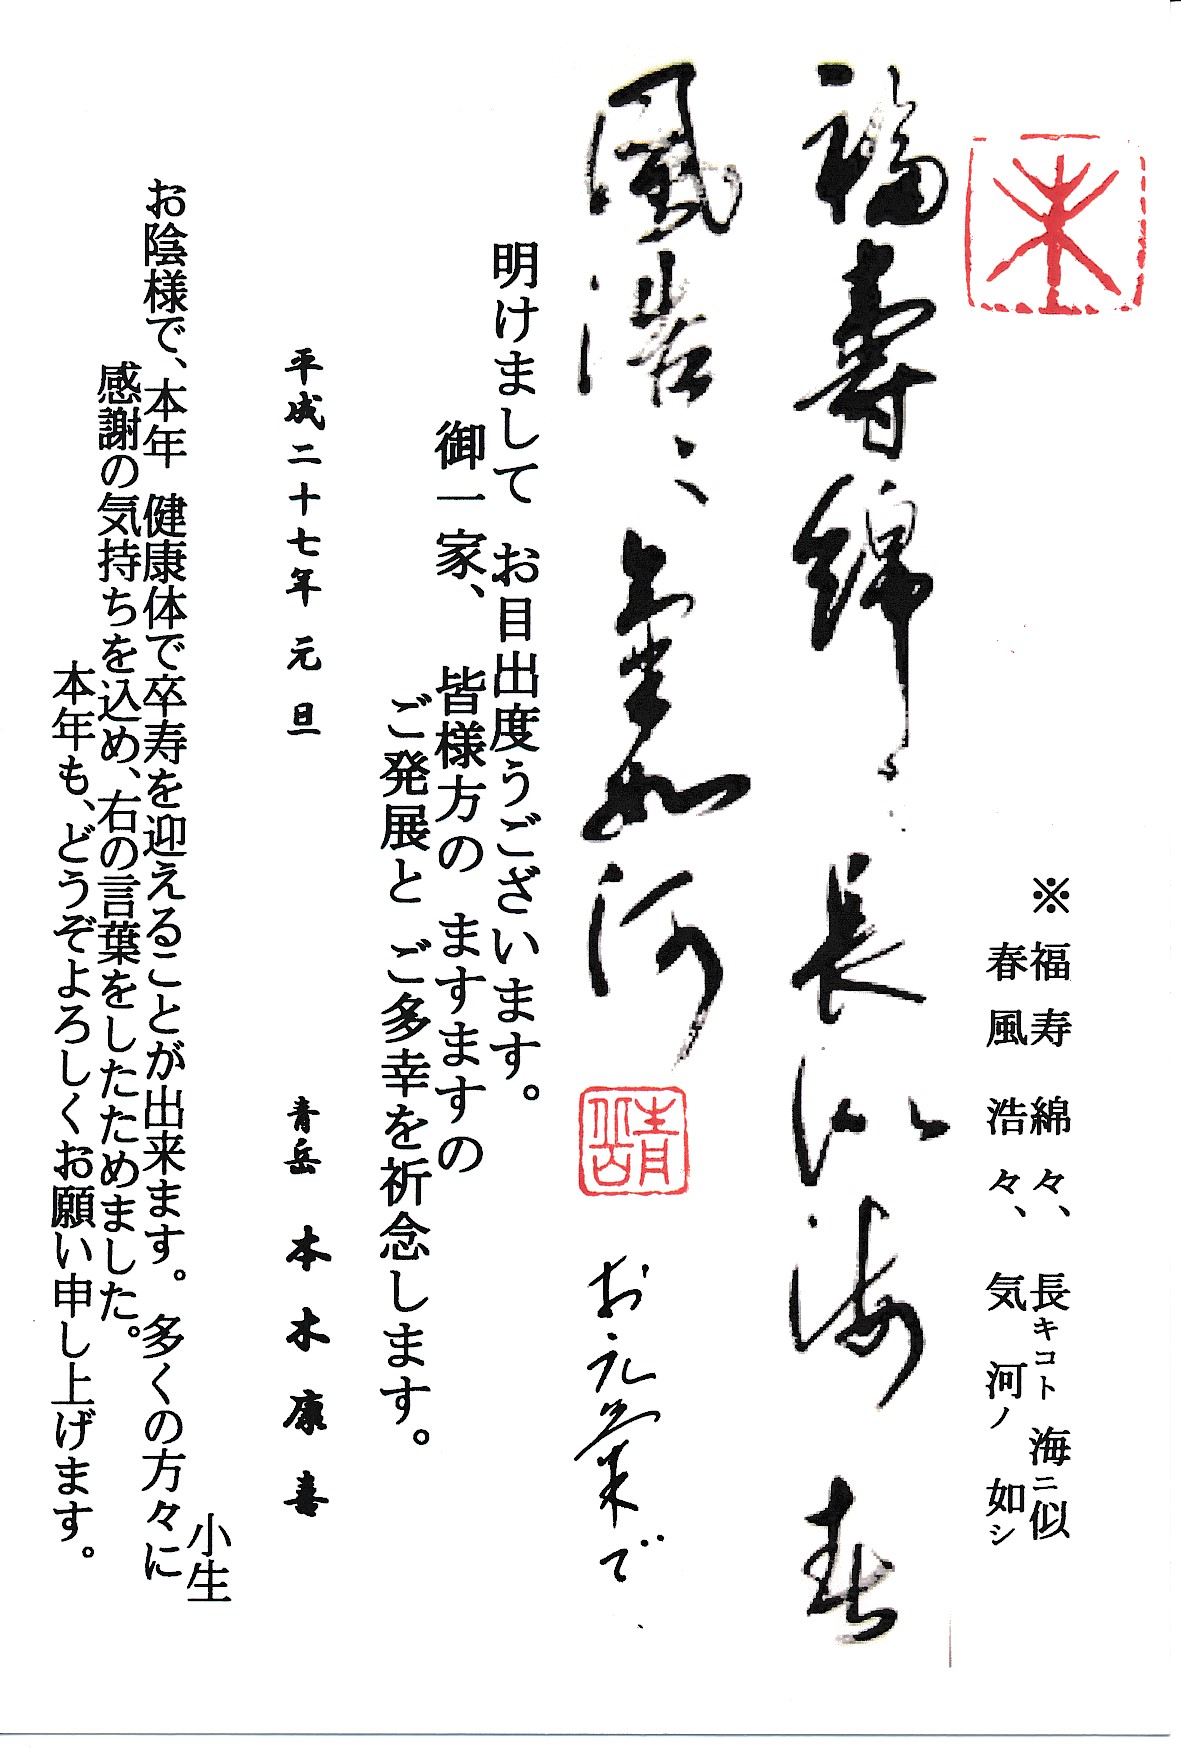 ※福寿 綿々、 長キコト 海ニ似
春風 浩々、 気 河ノ 如シ
福壽綿々 長似海 春
風浩〻 氣如河
青岳
お元気で
明けまして お目出度うございます。
御一家、 皆様方の ますますの
ご発展と ご多幸を祈念します。
平成二十七年 元旦
青岳 本木康喜
小生
お陰様で、本年 健康体で卒寿を迎えることが出来ます。多くの方々に
感謝の気持ちを込め、右の言葉をしたためました。
本年も、どうぞよろしくお願い申し上げます。